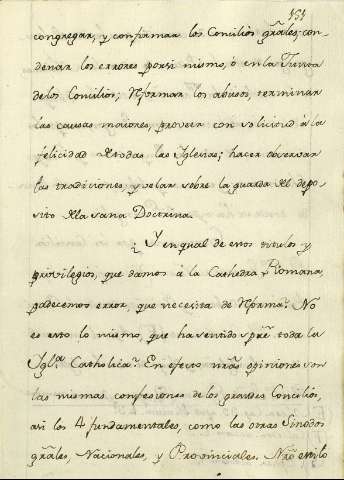 151
congregar, y confirmar los Concilios grãles, con-
denar los errores por si mismo, ó en la
de los Concilios; reformar los abusos, terminar
las causas maiores, proveer con solicitud á la
felicidad de todas las Iglesias; hacer observar
las tradiciones, y velar sobre la guarda del depo-
sito de la sana Doctrina.
¿Y en qual de estos titulos y
privilegios, que damos á la Cathedra Romana,
padecemos error, que necesita de reforma? No
es esto lo mismo, que ha sentido spre toda la
Igla Catholica? En efecto nrãs opiniones son
las mismas confesiones de los grandes Concilios,
asi los 4 fundamentales, como las otras Sinodos
grãles, Nacionales, y Provinciales. Nrõ estilo